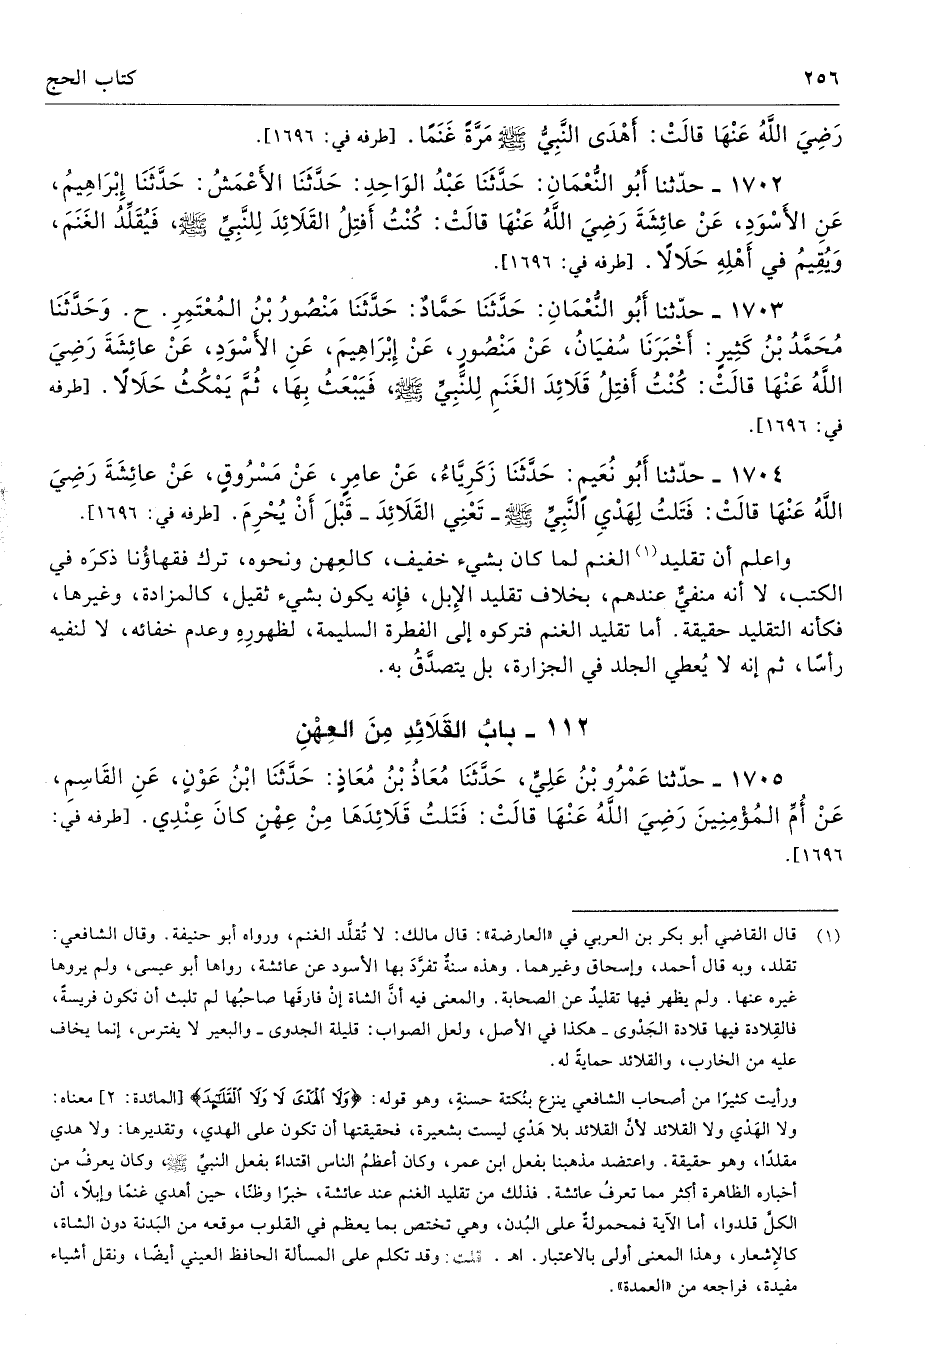 ٢٥٦ كتاب الحج
رَضِيَ اللَّهُ عَنْهَا قالَتْ: أَهْدَى النَّبِيُّ ﷺ مَرَّةً غَنَمًا. [طرفه في: ١٦٩٦].
١٧٠٢ ـ حدّثنا أَبُو النُّعْمَانِ: حَدَّثَنَا عَبْدُ الوَاحِدِ: حَدَّثَنَا الأَعْمَشُ: حَدَّثَنَا إِبْرَاهِيمُ،
عَنِ الأَسْوَدِ، عَنْ عائِشَةَ رَضِيَ اللَّهُ عَنْهَا قالَتْ: كُنْتُ أَفتِلُ القَلَائِدَ لِلنَّبِيِّ ﷺ، فَيُقَلِّدُ الغَنَمَ،
وَيُقِيمُ في أَهْلِهِ حَلَالًا. [طرفه في: ١٦٩٦].
١٧٠٣ ـ حدّثنا أَبُو النُّعْمَانِ: حَدَّثَنَا حَمَّادٌ: حَدَّثَنَا مَنْصُورُ بْنُ المُعْتَمِرِ. ح. وَحَدَّثَنَا
مُحَمَّدُ بْنُ كَثِيرٍ: أَخْبَرَنَا سُفيَانُ، عَنْ مَنْصُورٍ، عَنْ إِبْرَاهِيمَ، عَنِ الأَسْوَدِ، عَنْ عائِشَةَ رَضِيَ
اللَّهُ عَنْهَا قالَتْ: كُنْتُ أَفتِلُ قَلَائِدَ الغَنَمِ لِلنَّبِيِّ ﷺ، فَيَبْعَثُ بِهَا، ثُمَّ يَمْكُثُ حَلَالًا. [طرفه
في: ١٦٩٦].
١٧٠٤ ـ حدّثنا أَبُو نُعَيمٍ: حَدَّثَنَا زَكَرِيَّاءُ، عَنْ عامِرٍ، عَنْ مَسْرُوقٍ، عَنْ عائِشَةَ رَضِيَ
اللَّهُ عَنْهَا قالَتْ: فَتَلتُ لِهَدْيِ النَّبِيِّ ﷺ ـ تَعْنِي القَلَائِدَ ـ قَبْلَ أَنْ يُحْرِمَ. [طرفه في: ١٦٩٦].
واعلم أن تقليد(١) الغنم لما كان بشيء خفيف، كالعِهن ونحوه، ترك فقهاؤُنا ذكرَه في
الكتب، لا أنه منفيٌّ عندهم، بخلاف تقليد الإِبل، فإِنه يكون بشيء ثقيل، كالمزادة، وغيرها،
فكأنه التقليد حقيقة. أما تقليد الغنم فتركوه إلى الفطرة السليمة، لظهورِهِ وعدم خفائه، لا لنفيه
رأسًا، ثم إنه لا يُعطي الجلد في الجزارة، بل يتصدَّقُ به.
١١٢ ـ بابُ القَلَائِدِ مِنَ العِهْنِ
١٧٠٥ ـ حدّثنا عَمْرُو بْنُ عَلِيٍّ، حَدَّثَنَا مُعَاذُ بْنُ مُعَاذٍ: حَدَّثَنَا ابْنُ عَوْنٍ، عَنِ القَاسِمِ،
عَنْ أُمِّ المُؤْمِنِينَ رَضِيَ اللَّهُ عَنْهَا قالَتْ: فَتَلتُ قَلَائِدَهَا مِنْ عِهْنٍ كانَ عِنْدِي. [طرفه في:
١٦٩٦].
(١) قال القاضي أبو بكر بن العربي في «العارضة»: قال مالك: لا تُقلَّد الغنم، ورواه أبو حنيفة. وقال الشافعي:
تقلد، وبه قال أحمد، وإسحاق وغيرهما. وهذه سنةٌ تفرَّدَ بها الأسود عن عائشة، رواها أبو عيسى، ولم يروها
غيره عنها. ولم يظهر فيها تقليدٌ عن الصحابة. والمعنى فيه أنَّ الشاة إنْ فارقَها صاحبُها لم تلبث أن تكون فريسةً،
فالقِلادة فيها قلادة الجَدْوى ـ هكذا في الأصل، ولعل الصواب: قليلة الجدوى ـ والبعير لا يفترس، إنما يخاف
عليه من الخارب، والقلائد حمايةً له.
ورأيت كثيرًا من أصحاب الشافعي ينزع بنُكتة حسنةٍ، وهو قوله: ﴿وَلَا ٱلْهَدْىَ لَا وَلَا ٱلْقَلَٰٓئِدَ﴾ [المائدة: ٢] معناه:
ولا الهَدْي ولا القلائد لأنَّ القلائد بلا هَدْي ليست بشعيرة، فحقيقتها أن تكون على الهدي، وتقديرها: ولا هدي
مقلدًا، وهو حقيقة. واعتضد مذهبنا بفعل ابن عمر، وكان أعظمُ الناس اقتداءً بفعل النبيِّ ﷺ، وكان يعرفُ من
أخباره الظاهرة أكثر مما تعرفُ عائشة. فذلك من تقليد الغنم عند عائشة، خبرًا وظنًا، حين أهدي غنمًا وإبلًا، أن
الكلَّ قلدوا، أما الآية فمحمولةٌ على البُدن، وهي تختص بما يعظم في القلوب موقعه من البَدنة دون الشاة،
كالإِشعار، وهذا المعنى أولى بالاعتبار. اهـ. قلت: وقد تكلم على المسألة الحافظ العيني أيضًا، ونقل أشياء
مفيدة، فراجعه من «العمدة».